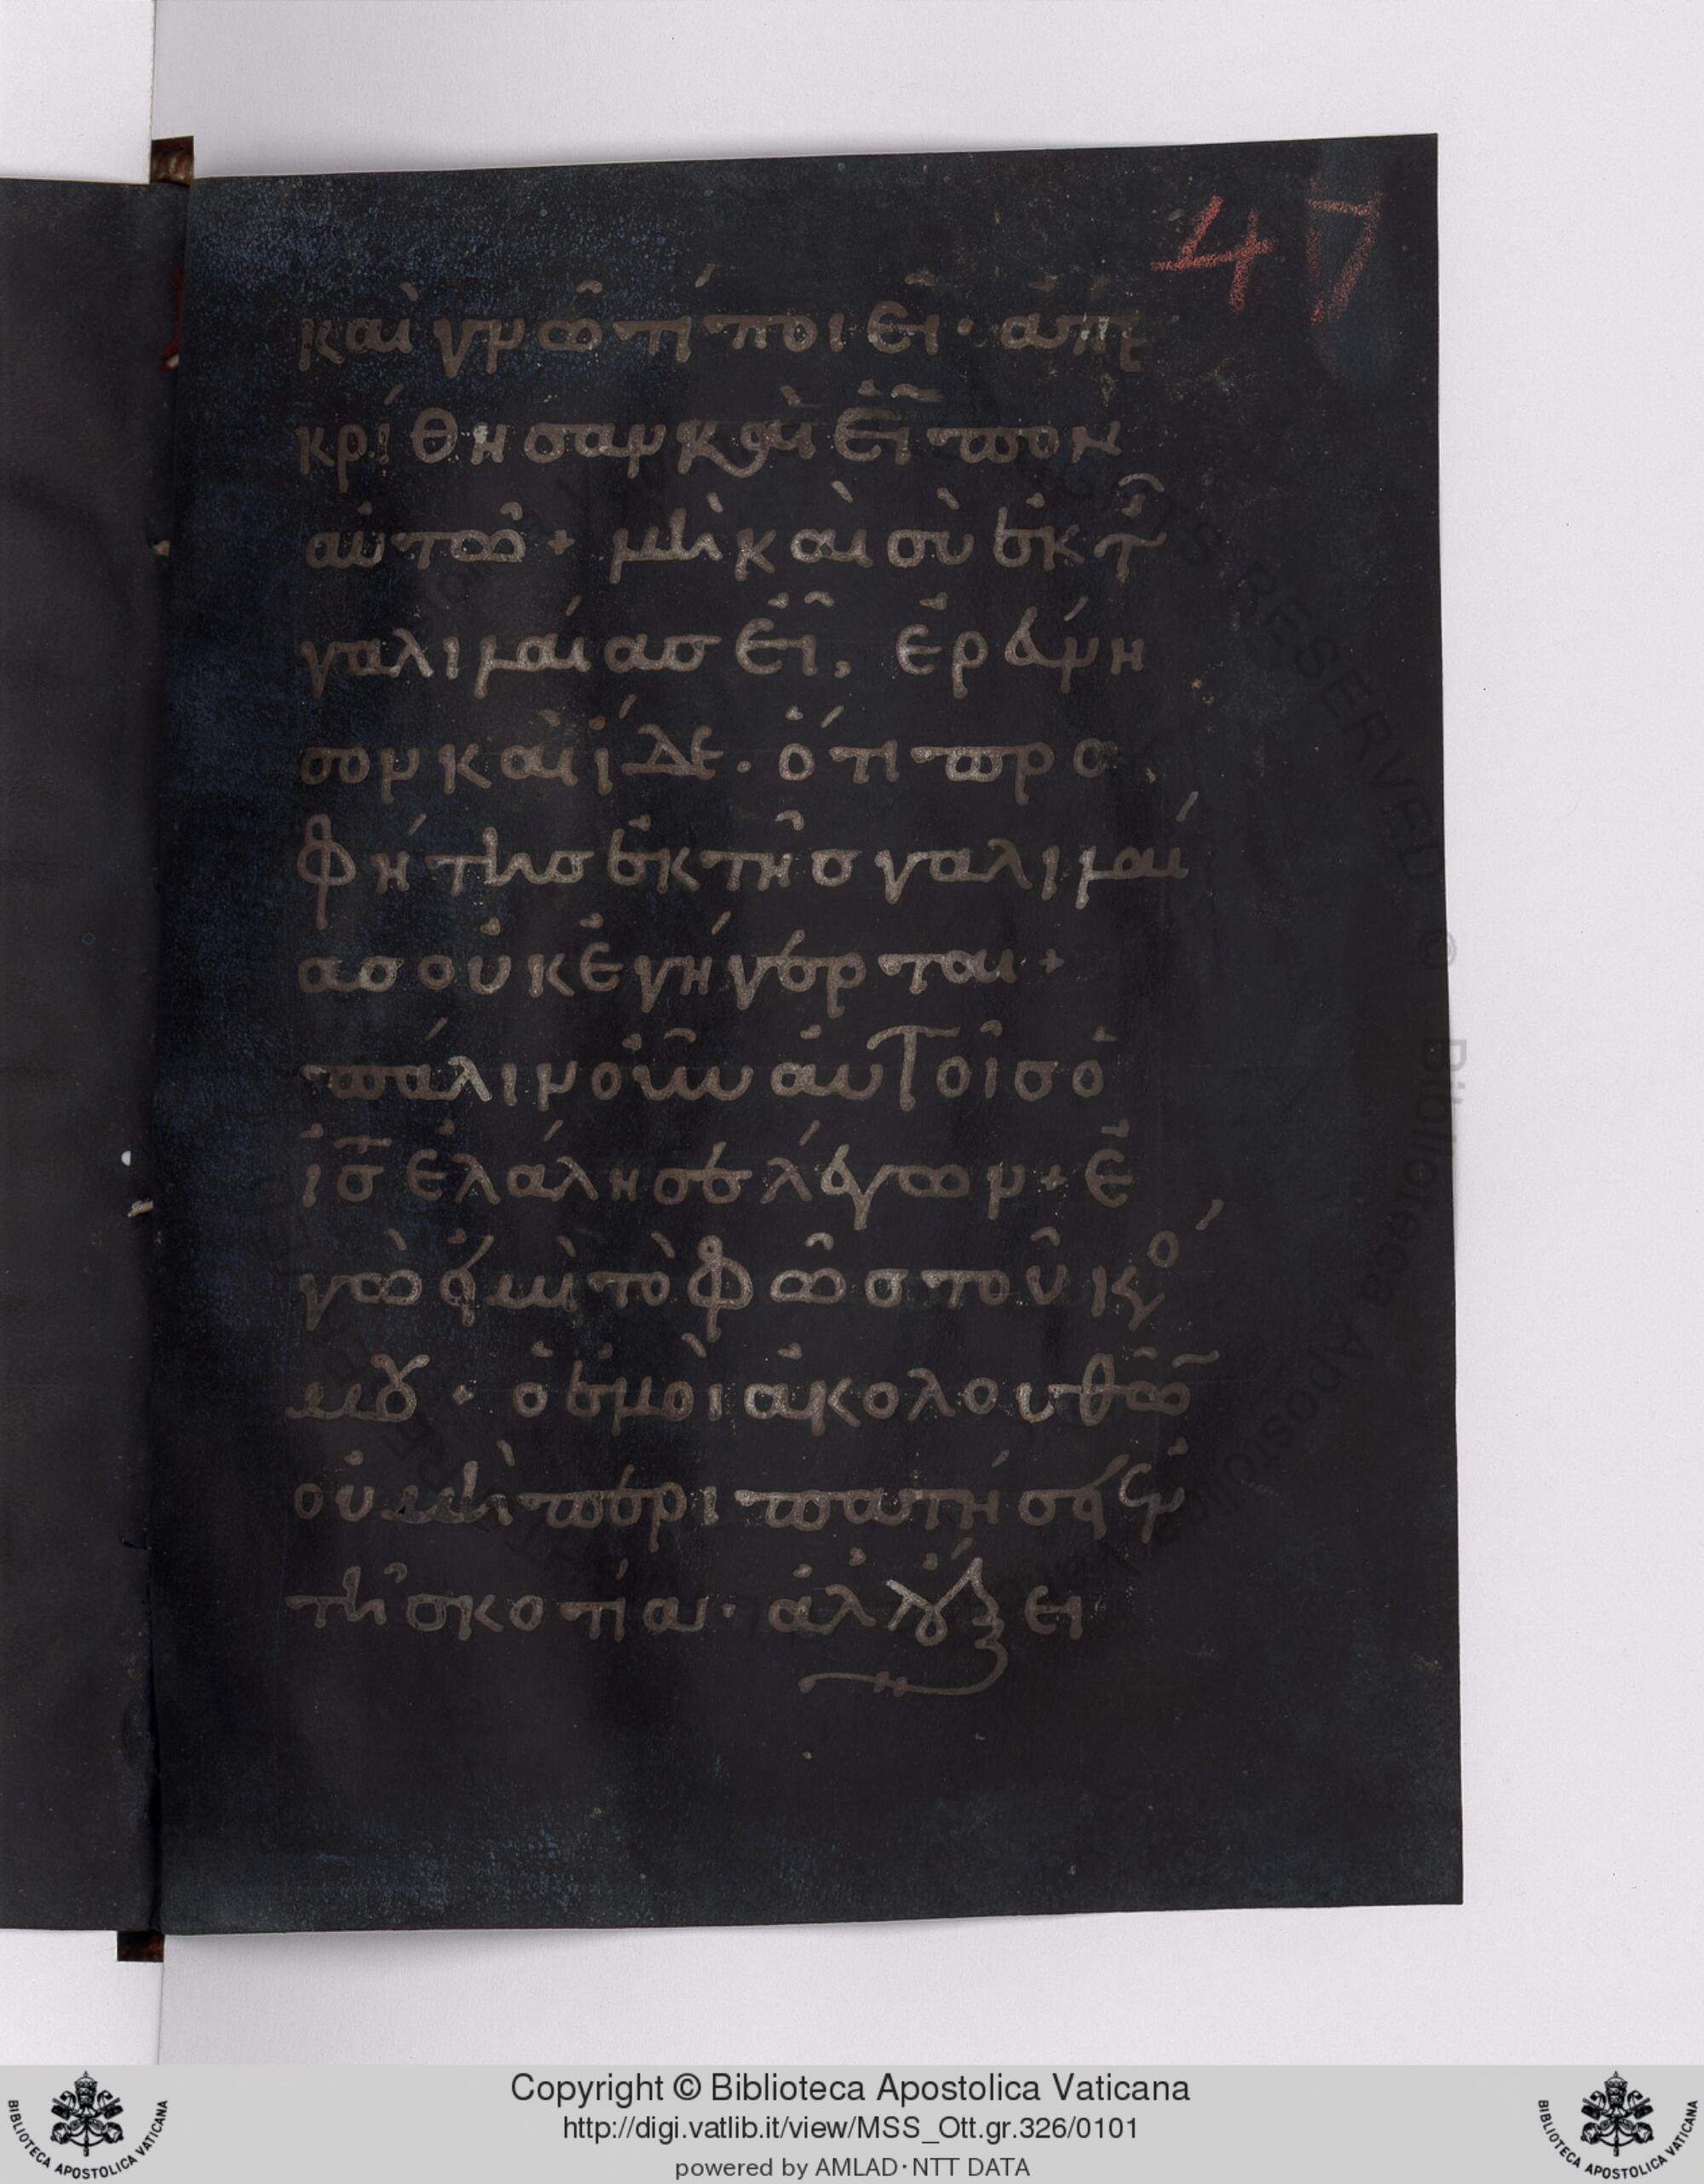 47
καὶ γνῶ τί ποιεῖ· ἀπε
κρίθησαν καὶ εἶπον
αὐτῶ + μὴ καὶ σὺ ἐκ τῆς
γαλιλαίας εἶ, ἐράυνη
σον καὶ ἴδε· ὅτι προ
φήτης ἐκ τῆς γαλιλαί
ας οὐκ ἐγήγερται +
πάλιν οὖν αὐτοῖς ὁ
ις ἐλάλησε λέγων + ἐ
γώ εἰμι τὸ φῶς τοῦ κό
μου · ὁ ἐμοὶ ἀκολουθῶν
οὐ μὴ περιπατήσει ἐν
τῆ σκοτία· ἀλλ' ἕξει
Copyright © Biblioteca Apostolica Vaticana
http://digi.vatlib.it/view/MSS_Ott.gr.326/0101
powered by AMLAD·NTT DATA
BIBLIOTECA APOSTOLICA VATICANA
BIBLIOTECA APOSTOLICA VATICANA